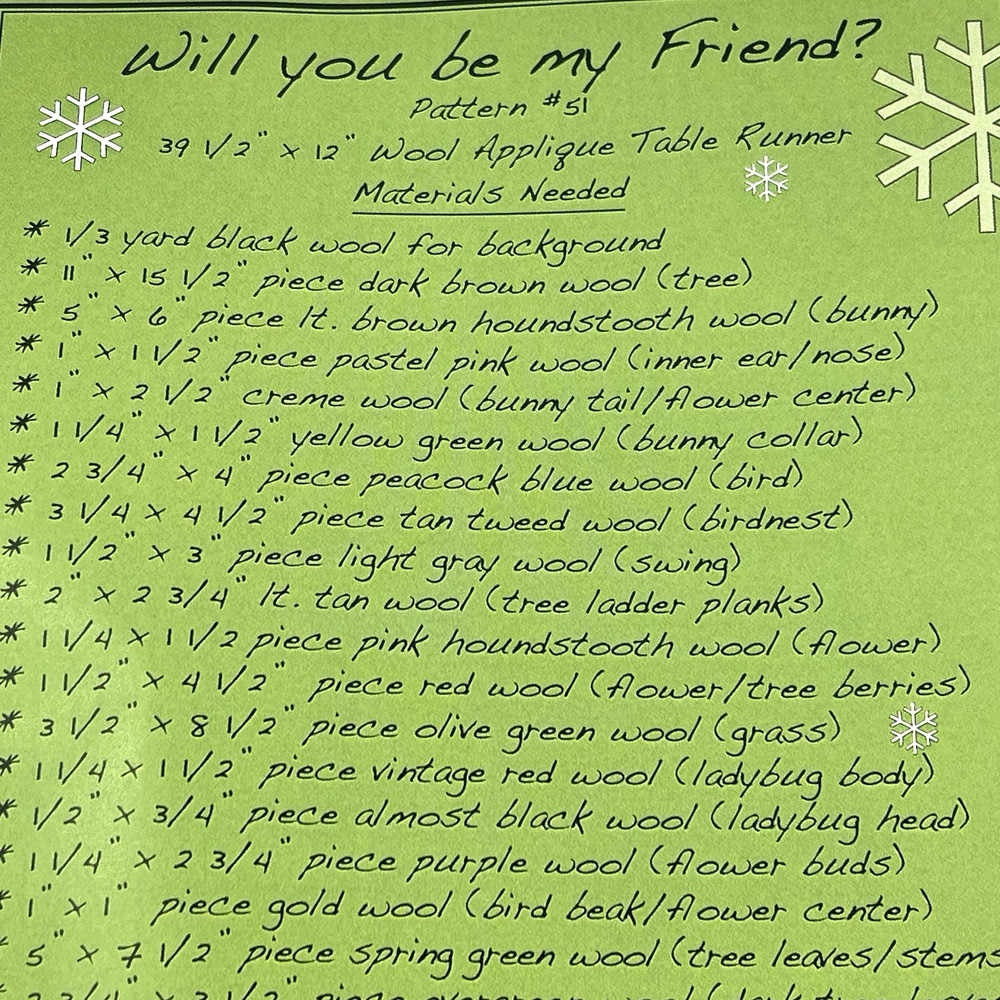 Will you be my Friend?
Pattern #51
39 1/2" x 12" Wool Applique Table Runner
Materials Needed
* 1/3 yard black wool for background
* 11" x 15 1/2" piece dark brown wool (tree)
* 5" x 6" piece lt. brown houndstooth wool (bunny)
* 1" x 1 1/2" piece pastel pink wool (inner ear/nose)
* 1" x 2 1/2" creme wool (bunny tail/flower center)
* 1 1/4" x 1 1/2" yellow green wool (bunny collar)
* 2 3/4" x 4" piece peacock blue wool (bird)
* 3 1/4 x 4 1/2" piece tan tweed wool (birdnest)
* 1 1/2" x 3" piece light gray wool (swing)
* 2" x 2 3/4" lt. tan wool (tree ladder planks)
* 1 1/4 x 1 1/2 piece pink houndstooth wool (flower)
* 1 1/2" x 4 1/2" piece red wool (flower/tree berries)
* 3 1/2" x 8 1/2" piece olive green wool (grass)
* 1 1/4 x 1 1/2" piece vintage red wool (ladybug body)
* 1/2" x 3/4" piece almost black wool (ladybug head)
* 1 1/4" x 2 3/4" piece purple wool (flower buds)
* 1" x 1" piece gold wool (bird beak/flower center)
* 5" x 7 1/2" piece spring green wool (tree leaves/stems
piece evergreen wool